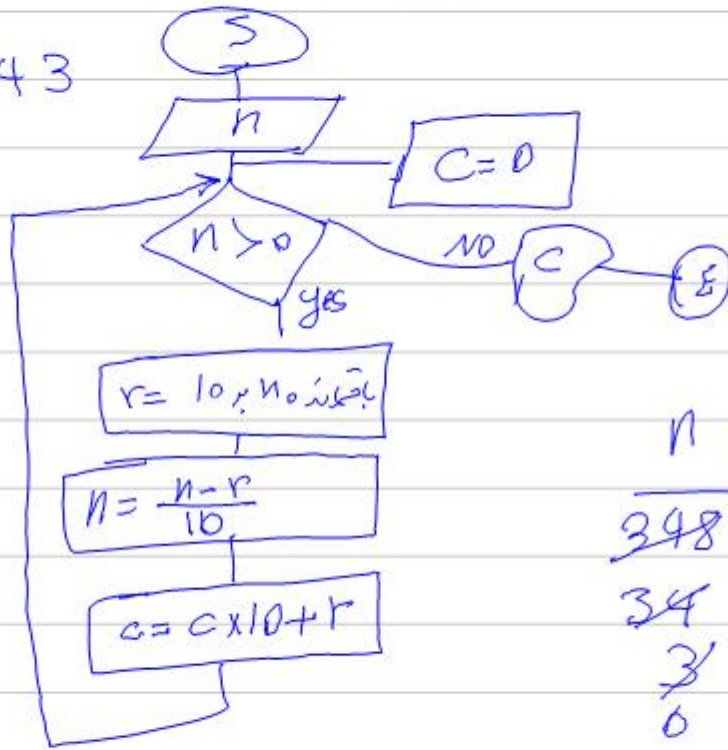 43
S
n
C=0
n>0
NO
C
E
yes
r= باقیمانده n بر 10
n= n-r / 10
c= c×10+r
n
348
34
3
0